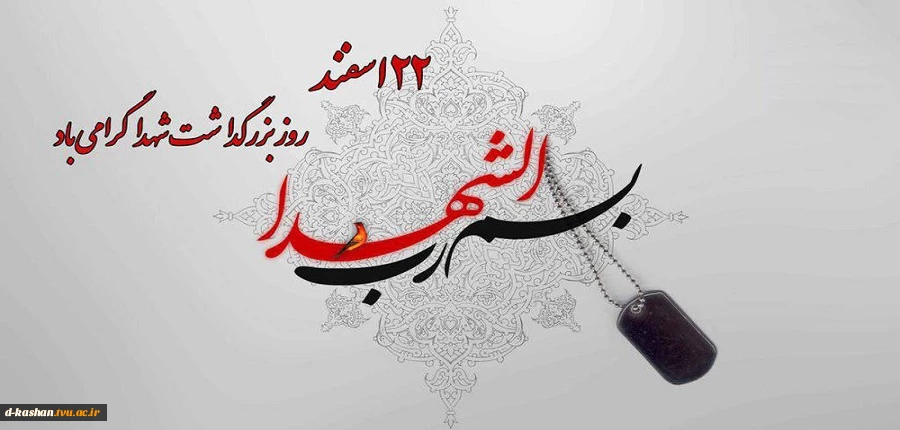 ۲۲ اسفند
روز بزرگداشت شهدا گرامی باد
بسم رب الشهدا
d-kashan.tvu.ac.ir